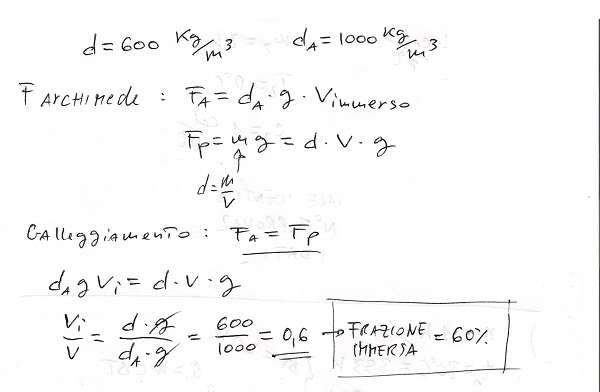 d = 600 Kg/m³ dA = 1000 Kg/m³
FARCHIMEDE : FA = dA · g · Vimmerso
Fp = m g = d · V · g
d = m/V
GAlleggiAmento : FA = Fp
dA g Vi = d · V · g
Vi/V = d · g / dA · g = 600/1000 = 0,6 → FRAZIONE IMMERSA = 60%